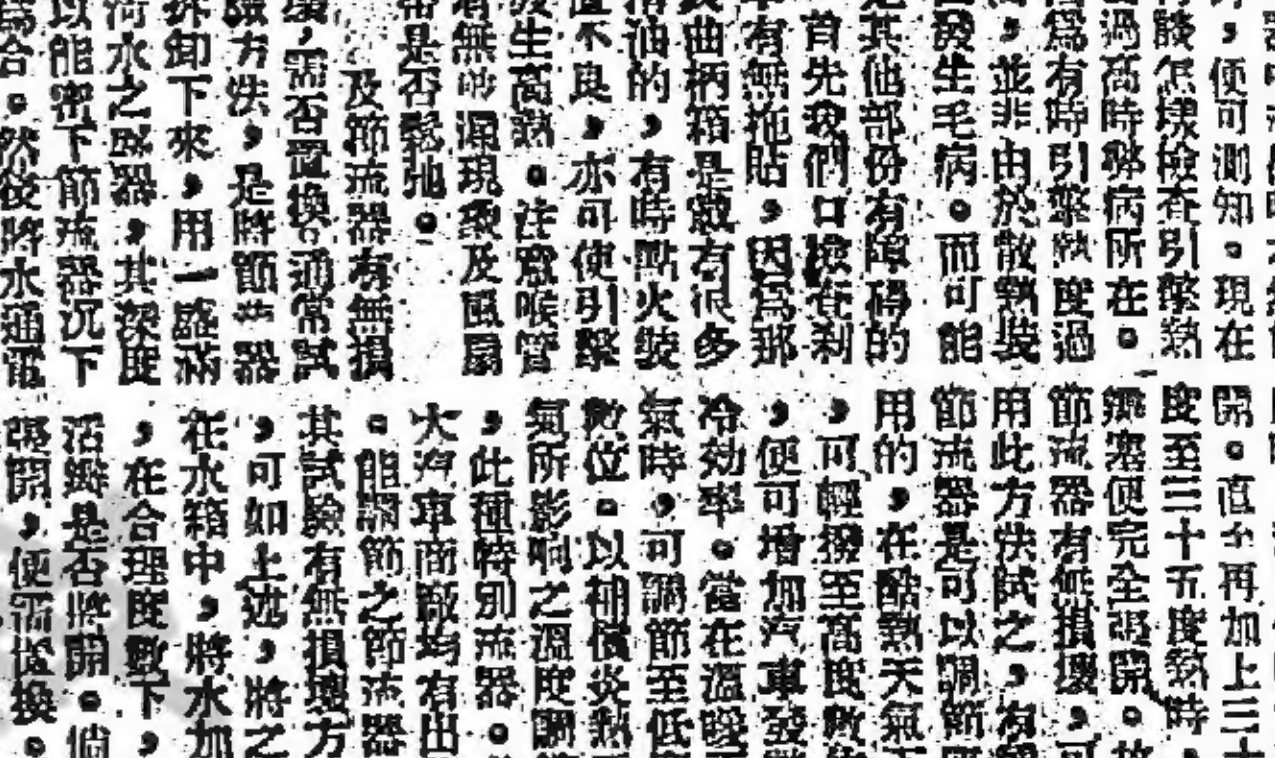 ，便可測知。現在
談怎樣檢查引擎熱
過高時弊病所在。
爲有時引擎熱度過
，並非由於散熱裝
發生毛病。而可能
其他部份有障碍的
首先我們口檢查刹
有無拖貼，因爲那
曲柄箱是否有很多
油的，有時點火裝
不良，亦可使引擎
生高熱。注意喉管
有無的漏現象及風扇
是否鬆弛。
及節流器有無損
壞，需否置換。通常試
方法，是將節流器
拆卸下來，用一盛滿
水之器，其深度
以能密下節流器沉下
爲合。然後將水通電
開。直至再加上三十
度至三十五度熱時
瓣塞便完全張開。故
節流器有無損壞，可
用此方法試之，有
節流器是可以調節
用的，在酷熱天氣
，可輕撥至高度數
，便可增加汽車發
冷効率。當在溫暖
氣時，可調節至低
數位。以補償炎熱
氣所影响之溫度調
，此種特別流器。
大汽車商廠均有出
。能調節之節流器
其試驗有無損壞方
，可如上述，將之
在水箱中，將水加
，在合理度數下，
活瓣是否將開。倘
張開，便需置換。